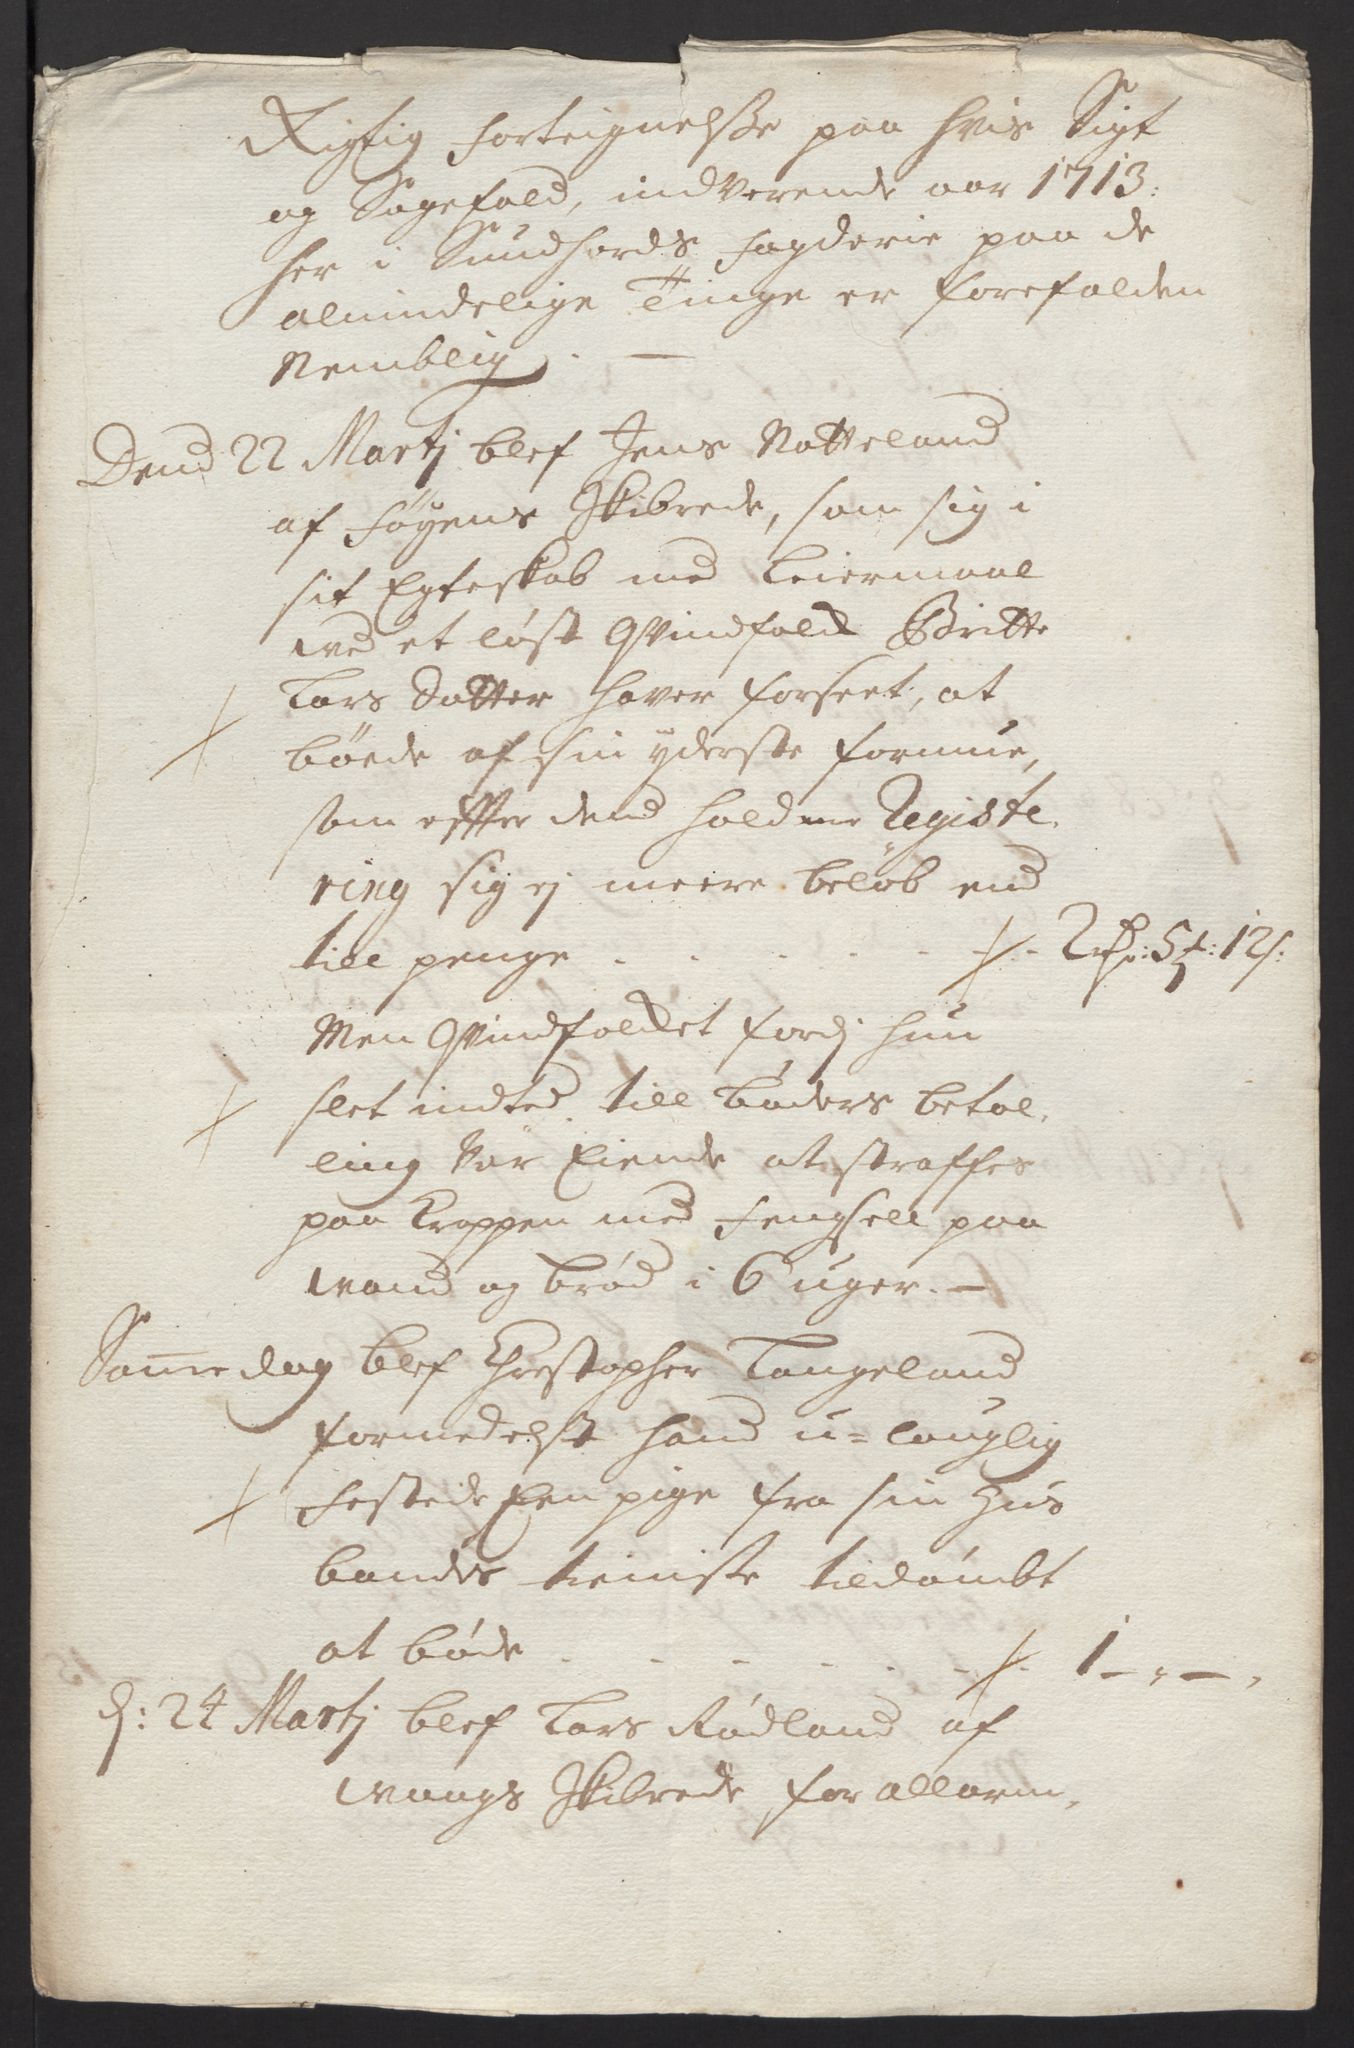 Rigtig forteignelsse paa hvis Sigt
og Sagefald, indverende aar 1713:
her i Sundhords fogderie paa de
almindelige Tinge er forefalden
Nemblig. —
Dend 22 Martj blef Jens Natteland
af føyens Skibrede, som sig i
sit Egteskab med Leiermaal
wed et løst Qvindfolck Britte
Lars Datter haver forseet, at
bøede af sin yderste formue,
som effter dend holdene Registe-
ring sig ej meere beløb end
till penge . . . . . . . 2 rdr: 5 mrk: 12 s:
Men Qvindfolcket fordj hun
slet indted till bøders betal-
ling var Eiende at straffes
paa kroppen med fengsell paa
wand og brød i 6 uger. —
Samme dag blef Chrestopher Tangeland
formedelst hand u=lauglig
festede Een pige fra sin Hus
bondes tieniste tildømbt
at bøde . . . . . . . 1 — „ —
d: 24 Martj blef Lars Rødland af
waags Skibrede for allarm,